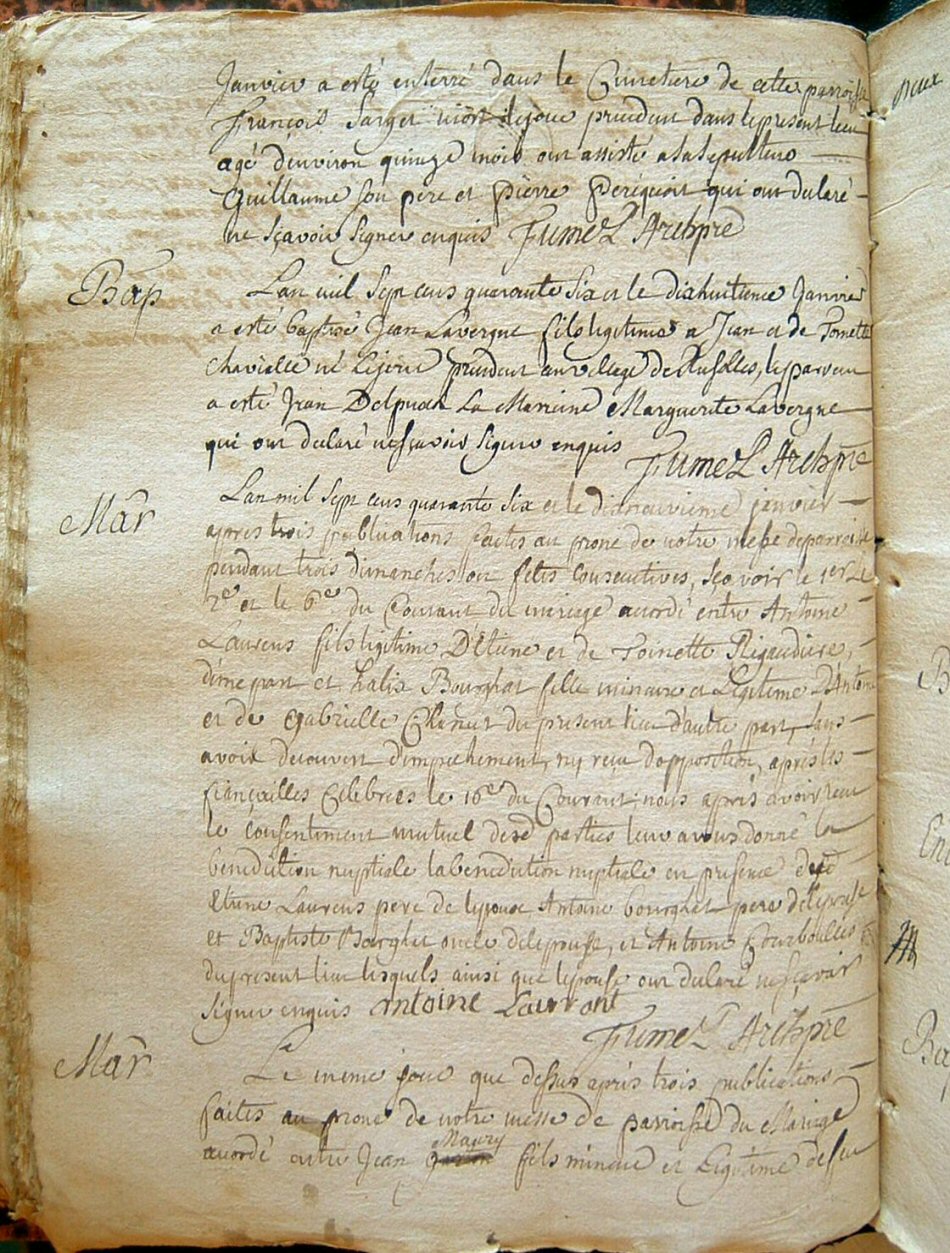 Janvier a esté enterré dans le Cimetiere de cette parroisse
François Sarget mort le jour precedent dans le present lieu
agé d'environ quinze mois ont assisté a sa sepulture
Guillaume son pere et Pierre qui ont declaré
ne sçavoir signer enquis Fumel Archpre
Bap
Lan mil sept cens quarante six et le dixhuitieme Janvier
a esté baptisé Jean Lavergne fils legitime a Jean et de Toinette
né le jour precedent au village de le parrein
a esté Jean Delpuch La Marreine Marguerite Lavergne
qui ont declaré ne sçavoir signer enquis
Fumel Archpre
Mar
Lan mil sept cens quarante six et le dixneuvieme janvier
apres trois publications faites au prone de notre messe de parroisse
pendant trois dimanches ou fêtes consecutives, sçavoir le 1er le
2e et le 6e du Courant du mariage acordé entre Antoine
Laurens fils legitime D'Etiene et de Toinette Rigaudiere,
d'une part et Halix Bourghat fille mineure et Legitime D'Antoine
et de Gabrielle du present lieu d'autre part, sans
avoir decouvert d'empechement, ny reçu d'opposition, après les
fiançailles Celebrées le 16e du Courant; nous après avoir reçu
le consentiment mutuel desd parties leur avons donné la
benediction nuptiale la benediction nuptiale en presence dud
Etiene Laurens pere de lepoux Antoine bourghat pere de lepouse
et Baptiste Borghat oncle de lepouse, et Antoine Courboulles
du present lieu lesquels ainsi que lepouse ont declaré ne sçavoir
signer enquis antoine Laurant
Fumel Archpre
Mar
Le meme jour que dessus après trois publications
faites au prone de notre messe de parroisse du Mariage
acordé entre Jean Maury fils mineur et Legitime de feu